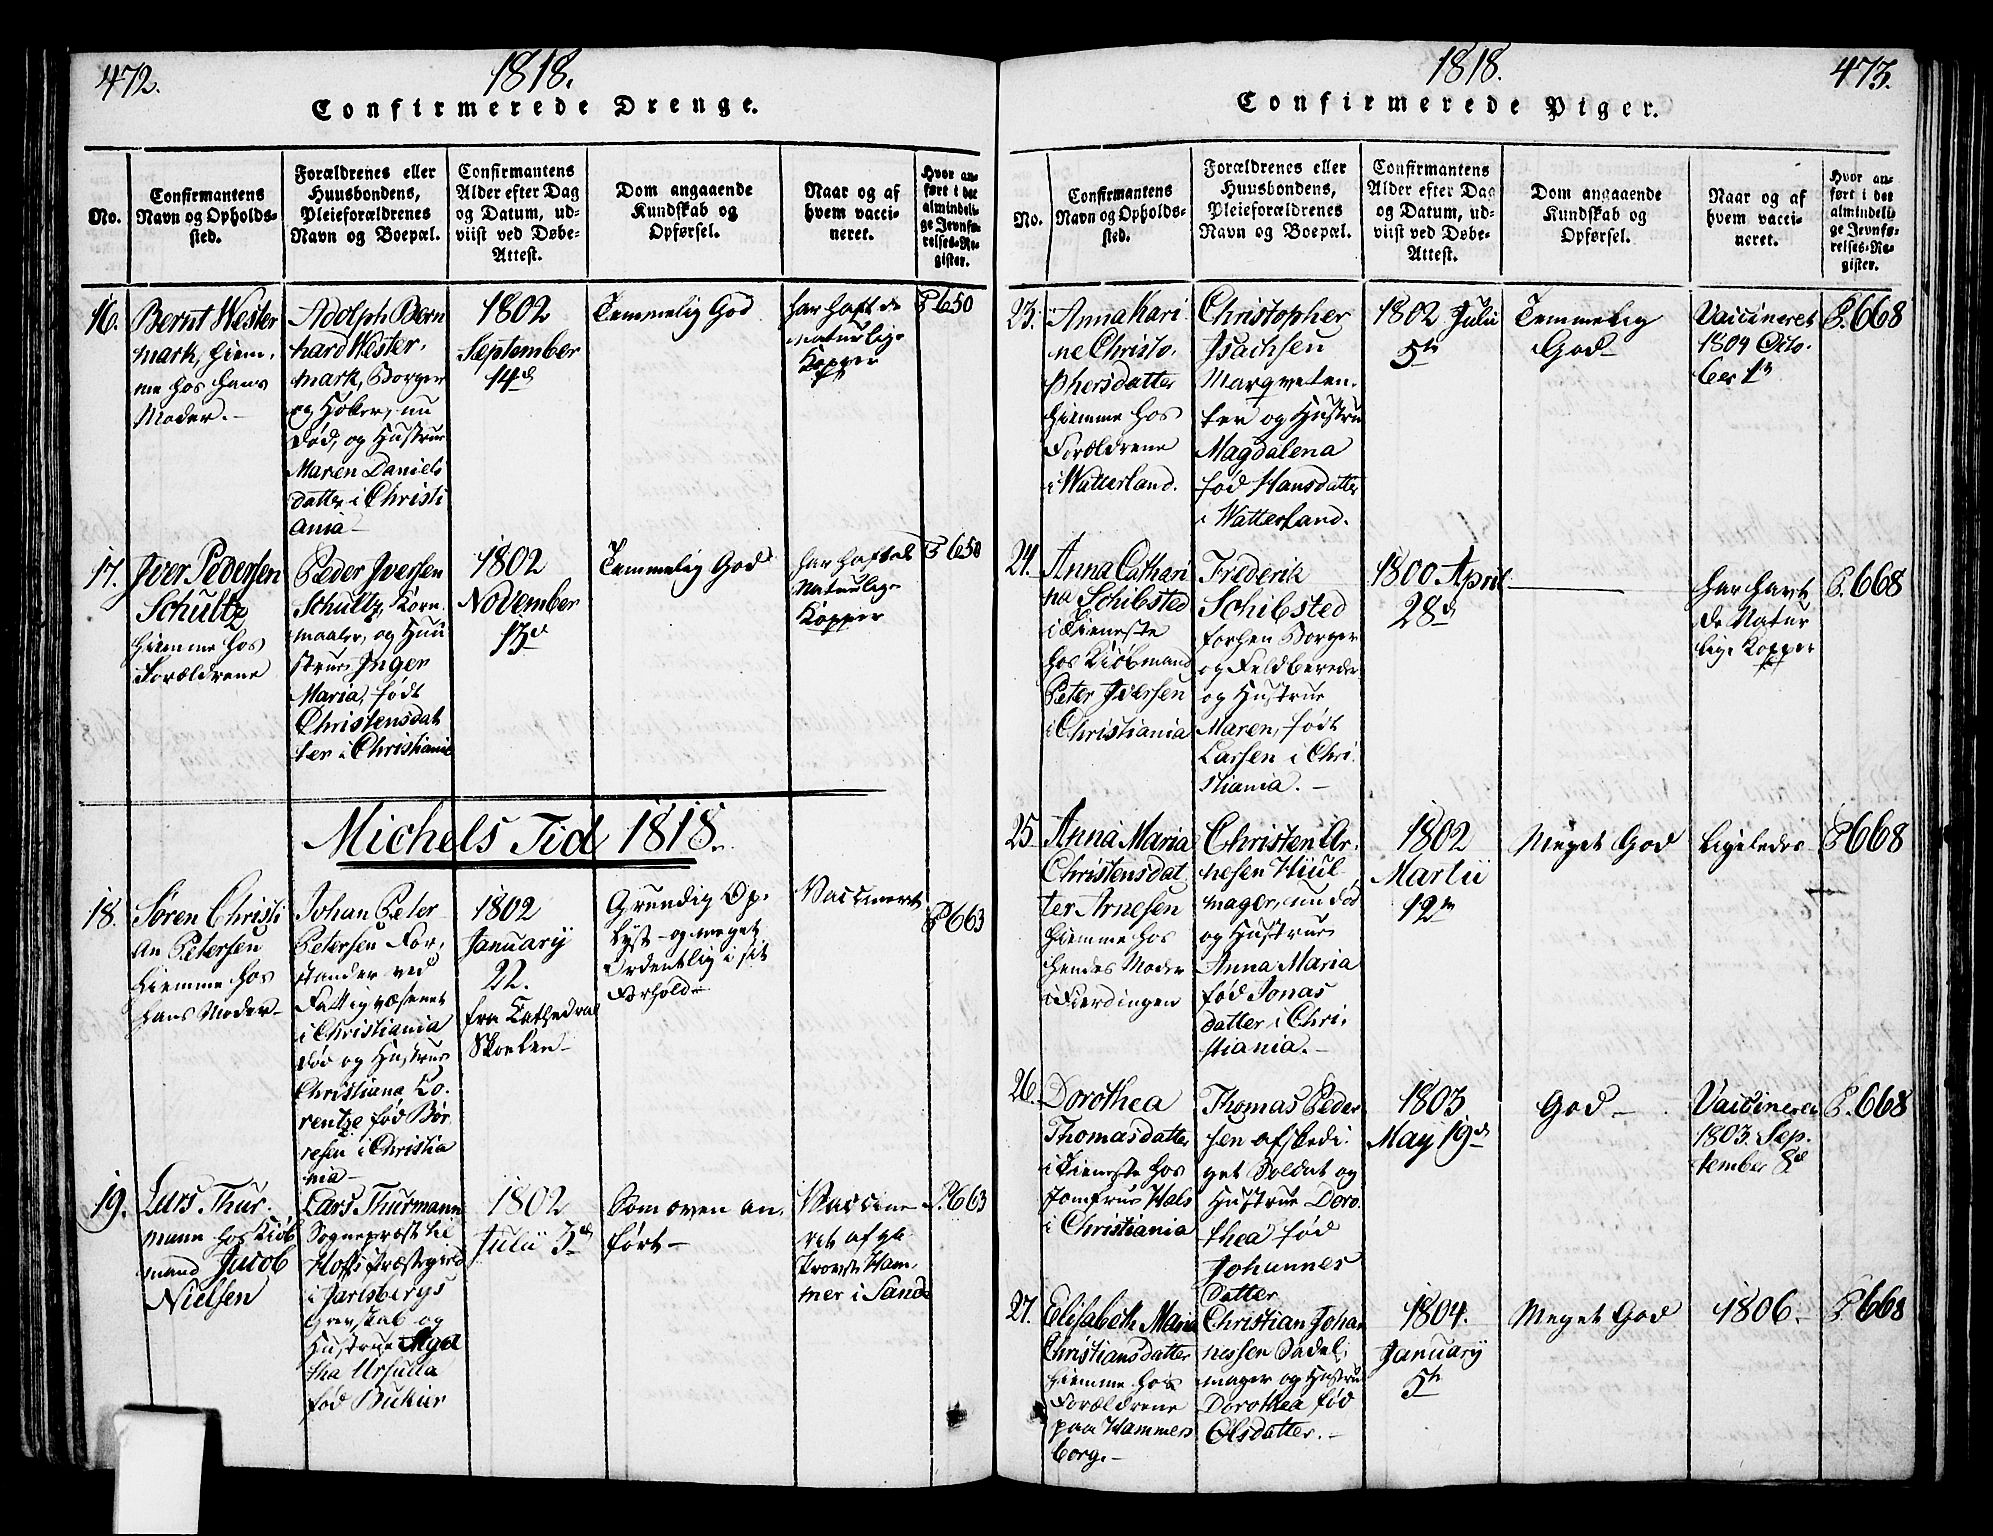 472.
1818.
Confirmerede Drenge.
No.
Confirmantens
Navn og Opholds-
sted.
Forældrenes eller
Huusbondens,
Pleieforældrenes
Navn og Boepæl.
Confirmantens
Alder efter Dag
og Datum, ud-
viist ved Døbe-
Attest.
Dom angaaende
Kundskab og
Opførsel.
Naar og af
hvem vacci-
neret.
Hvor an-
ført i det
almindeli-
ge Jevnfø-
relses-Re-
gister.
16.
Bernt Wester
mark, hiem-
me hos hans
Moder.-
Adolph Bern
hard Wester-
mark, Borger
og Høker, nu
død, og Hustrue
Maren Daniels
datter i Christi
ania-
1802
September
14d
Temmelig God
har haft de
naturlige
Kopper
P 650
17.
Iver Pedersen
Schultz
hiemme hos
Forældrene
Peder Iversen
Schultz, Korn-
maaler, og Huu
strue Inger
Maria, født
Christensdat
ter i Christiania
1802
November
13d
Temmelig God
har haft de
Naturlige
Kopper
P 650
Michels Tid 1818.
18.
Søren Christi
an Petersen
hiemme hos
hans Moder-
Johan Peter
Petersen For-
stander ved
Fattigvæsenet
i Christiania
død og Hustrue
Christiana Lo-
rentze fød Bør
resen i Christia
nia-
1802
January
22.
fra Cathedral
Skoelen-
Grundig Op-
lyst- og meget
Ordentlig i sit
Forhold-
Vaccinert
P 663
19.
Lars Thur-
mann hos Kiøb
mand Jacob
Nielsen
Lars Thurmann
Sognepræst til
Hoffs Præstegield
i Jarlsbergs
Grevskab og
Hustrue Aga
tha Ursulla
fød
1802
Julii 3d
Som oven an-
ført-
Vaccine-
ret af
Provst Ham-
mer i Sande
P. 663
1818.
473.
Confirmerede Piger.
No.
Confirmantens
Navn og Opholds-
sted.
Forældrenes eller
Huusbondens,
Pleieforældrenes
Navn og Boepæl.
Confirmantens
Alder efter Dag
og Datum, ud-
viist ved Døbe-
Attest.
Dom angaaende
Kundskab og
Opførsel.
Naar og af
hvem vacci-
neret.
Hvor an-
ført i det
almindeli-
ge Jevnfø-
relses-Re-
gister.
23.
Anna Kari
ne Christo-
phersdatter
hiemme hos
Forældrene
i Watterland.
Christopher
Isachsen
Marqveten-
ter og Hustrue
Magdalena
fød Hansdatter
i Watterland.
1802 Julii
5te
Temmelig
God-
Vaccineret
1809 Octo-
ber 1
P. 668
24.
Anna Cathari
na Schibsted
i Tieneste
hos Kiøbmand
Peter Iversen
i Christiania
Frederik
Schibsted
forhen Borger
og Feldbereder
og Hustrue
Maren, født
Larsen i Chri
stiania.-
1800 April
28d
har havt
de Natur
lige Kopper
P. 668
25
Anna Maria
Christensdat
ter Arnesen
hiemme hos
hendes Moder
i Fierdingen
Christen Ar-
nesen Hiul-
mager, nu død
og Hustrue
Anna Maria
fød Jonas
datter i Chri-
stiania.-
1802
Martii
12te
Meget God
Ligeledes
P 668
26.
Dorothea
Thomasdatter
i Tieneste hos
Jomfrue Hals
i Christiania
Thomas Peder
sen afskedi-
get Soldat og
Hustrue Doro-
thea fød
Johannes
datter
1803
May 19d
God-
Vaccineret
1803. Sep-
tember 8d
P. 668
27.
Elisabeth Maria
Christiansdatter
hiemme hos
Forældrene
paa Hammers
borg.-
Christian Johan
nessen Sadel-
mager og Hustrue
Dorothea fød
Olsdatter.-
1804.
January
5te
Meget God
1806.-
P 668